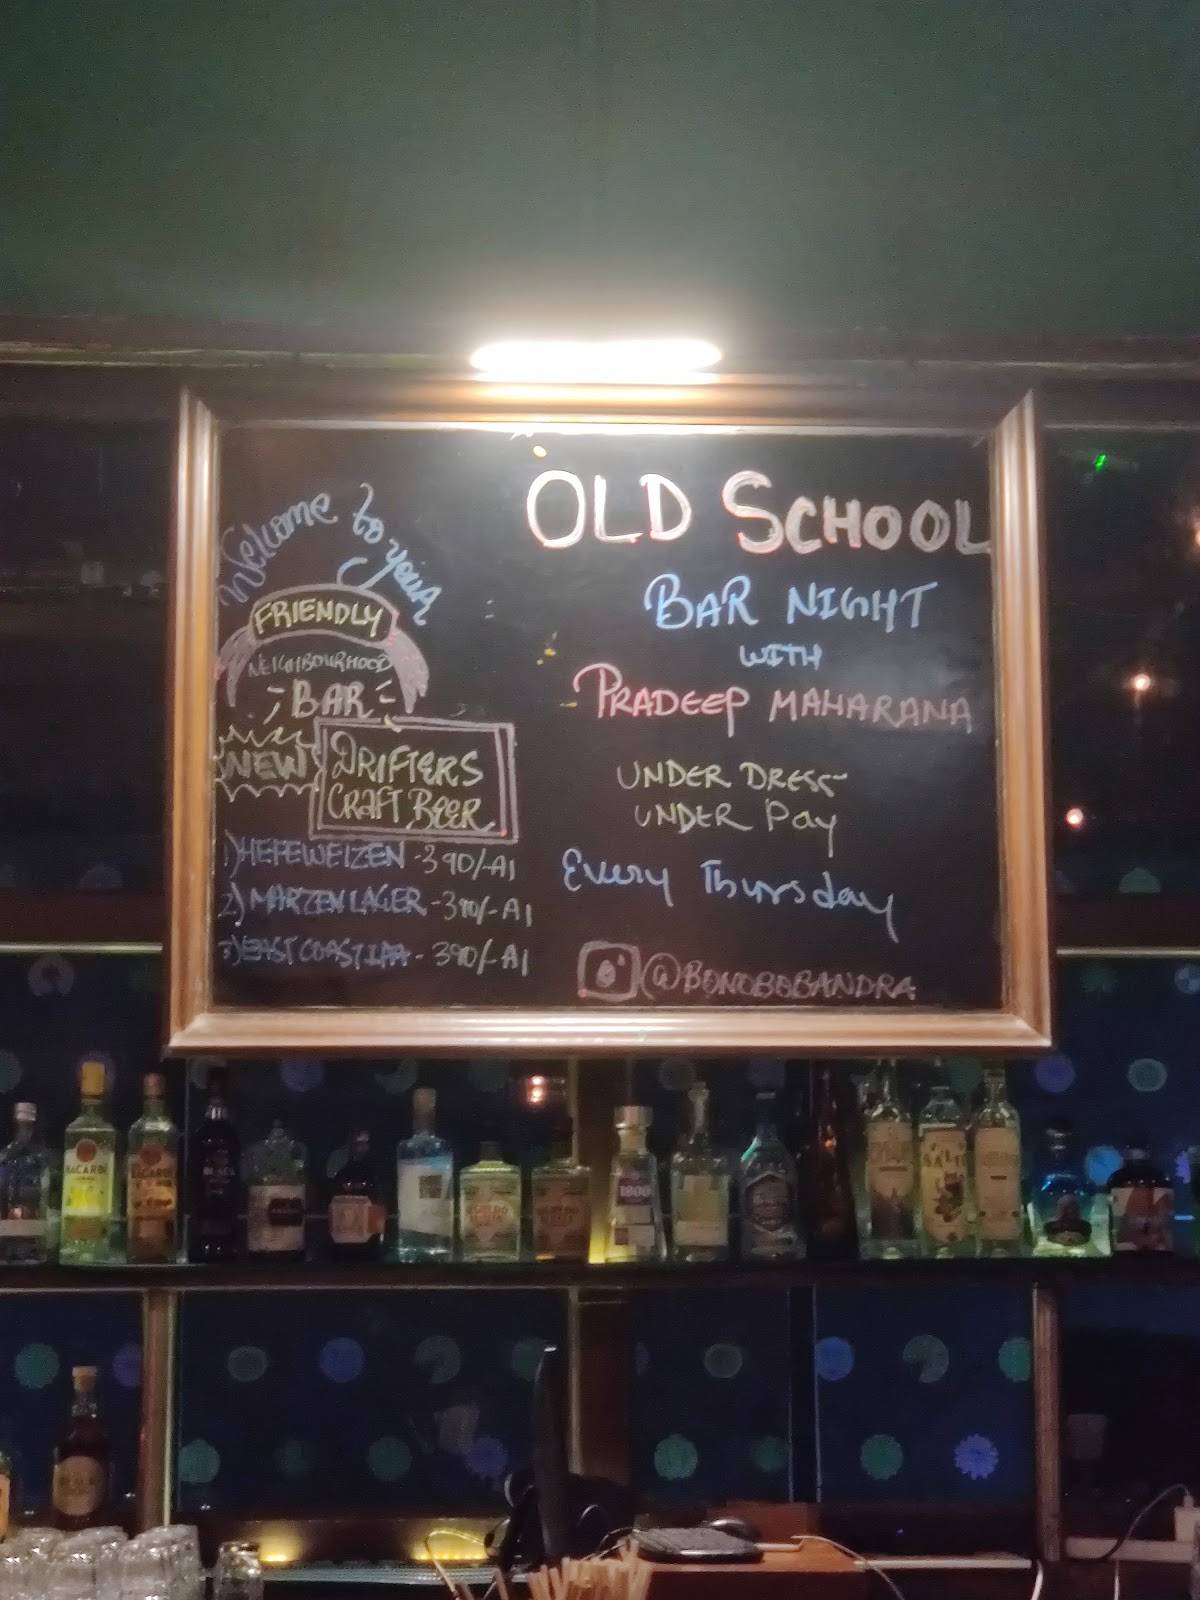 Welcome to your
FRIENDLY
NEIGHBOURHOOD
BAR
NEW
DRIFTERS
CRAFT BEER
1) HEFEWEIZEN - 390/-AI
2) MARZEN LAGER - 390/- AI
3) EAST COAST IPA - 390/- AI
OLD SCHOOL
BAR NIGHT
WITH
PRADEEP MAHARANA
UNDER DRESS
UNDER Pay
Every Thursday
@BONOBOBANDRA
BACARDI
1800